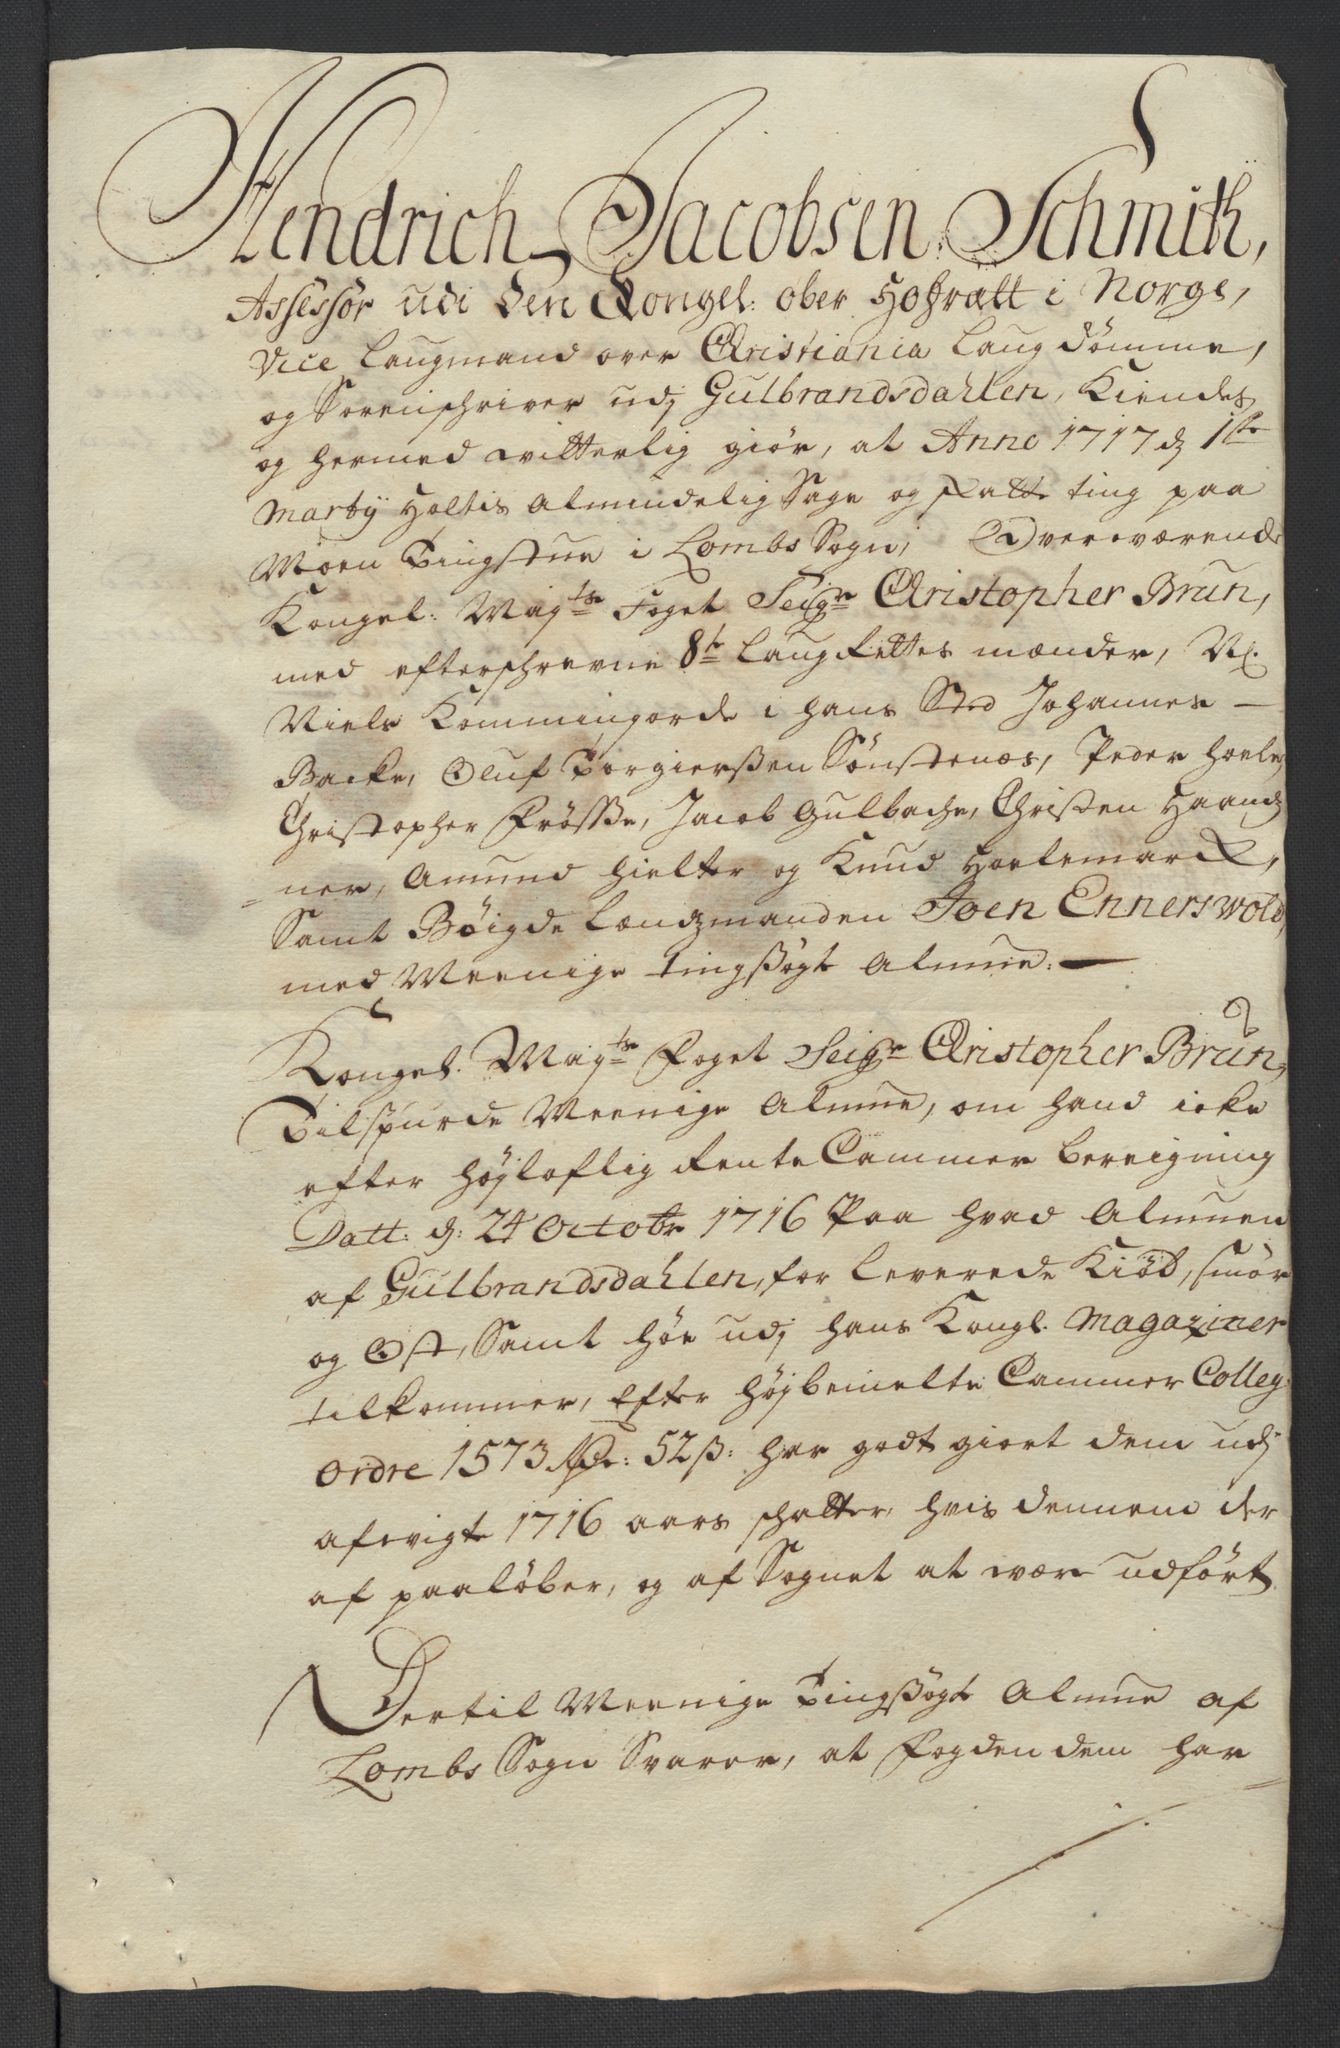 Hendrich Jacobsen Schmith,
Assessor udi den Kongel: ober Hofrætt i Norge,
Vice Laugmand over Christiania Laug dømme,
og Sorenschriver udj Gulbrandsdahlen, Kiendes
og hermed witterlig giør, at Anno 1717 d 1ste
Martij Holtis Almindelig Sage og Skatte ting paa
Moen Tingstue i Lombs Sogn, Overværende
Kongel: Maytz Foget Seigr Christopher Brun,
med efterschrevne 8te Laug Rettes mænder, Nl.
Niels Kommingorde i hans Sted Johannes
Backe, Oluf Torgierßen Sønstenæs, Peder Hoele,
Christopher Frøsße, Jacob Gulbache, Christen Haand
ner, Amund Hielter og Knud Hoelemarck,
Samt Bøigde Lendzmanden Joen Enners Wold,
med Meenige tingßøgte Almue.
Kongel. Maytz Foget Seigr Christopher Brun,
Tilspurde Meenige Almue, om hand icke
efter Højloflig Rente Cammer bereigning
Datt: d: 24 Octobr 1716 Paa hvad Almuen
af Gulbrandsdahlen, for leverede Kiød, smør
og Ost, Samt høe udj hans Kongl. Magaziner
tilkommer, Efter Højbemelte Cammer Colleg:
Ordre 1573 Rdr: 52 ß: har godt giort dem udj
afwigte 1716 aars schatter, hvis dennem der
af paaløber, og af Sognet at være udført.
Dertil Meenige Tingßøgte Almue af
Lombs Sogn Svarer, at Fogden dem har